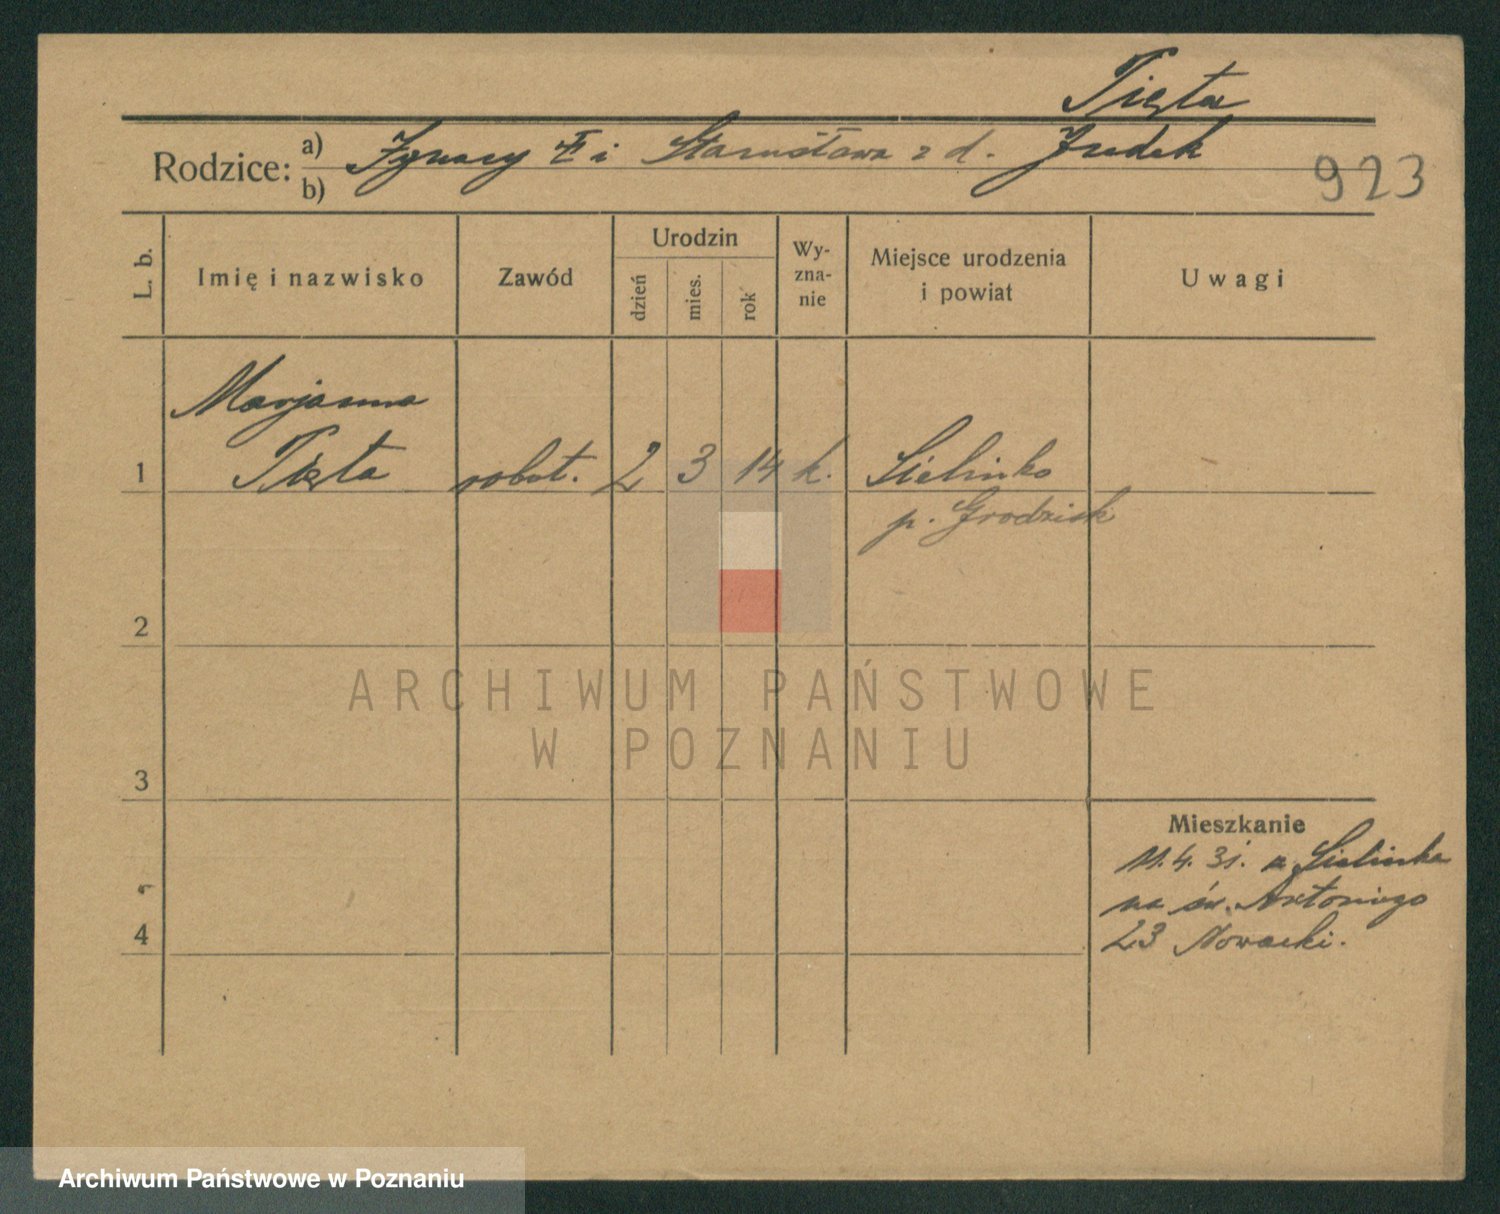 Pięta
Rodzice: a) Ignacy i Stanisława z d. Judek
b)
923
L. b.
Imię i nazwisko
Zawód
Urodzin
dzień
mies.
rok
Wy-
zna-
nie
Miejsce urodzenia
i powiat
Uwagi
Marjanna
1 Pięta robot. 2 3 14 k. Sielinko
p. Grodzisk
2
3
4
Mieszkanie
11.4.31. z Sielinka
na św. Antoniego
23 Nowacki.
ARCHIWUM PAŃSTWOWE
W POZNANIU
Archiwum Państwowe w Poznaniu